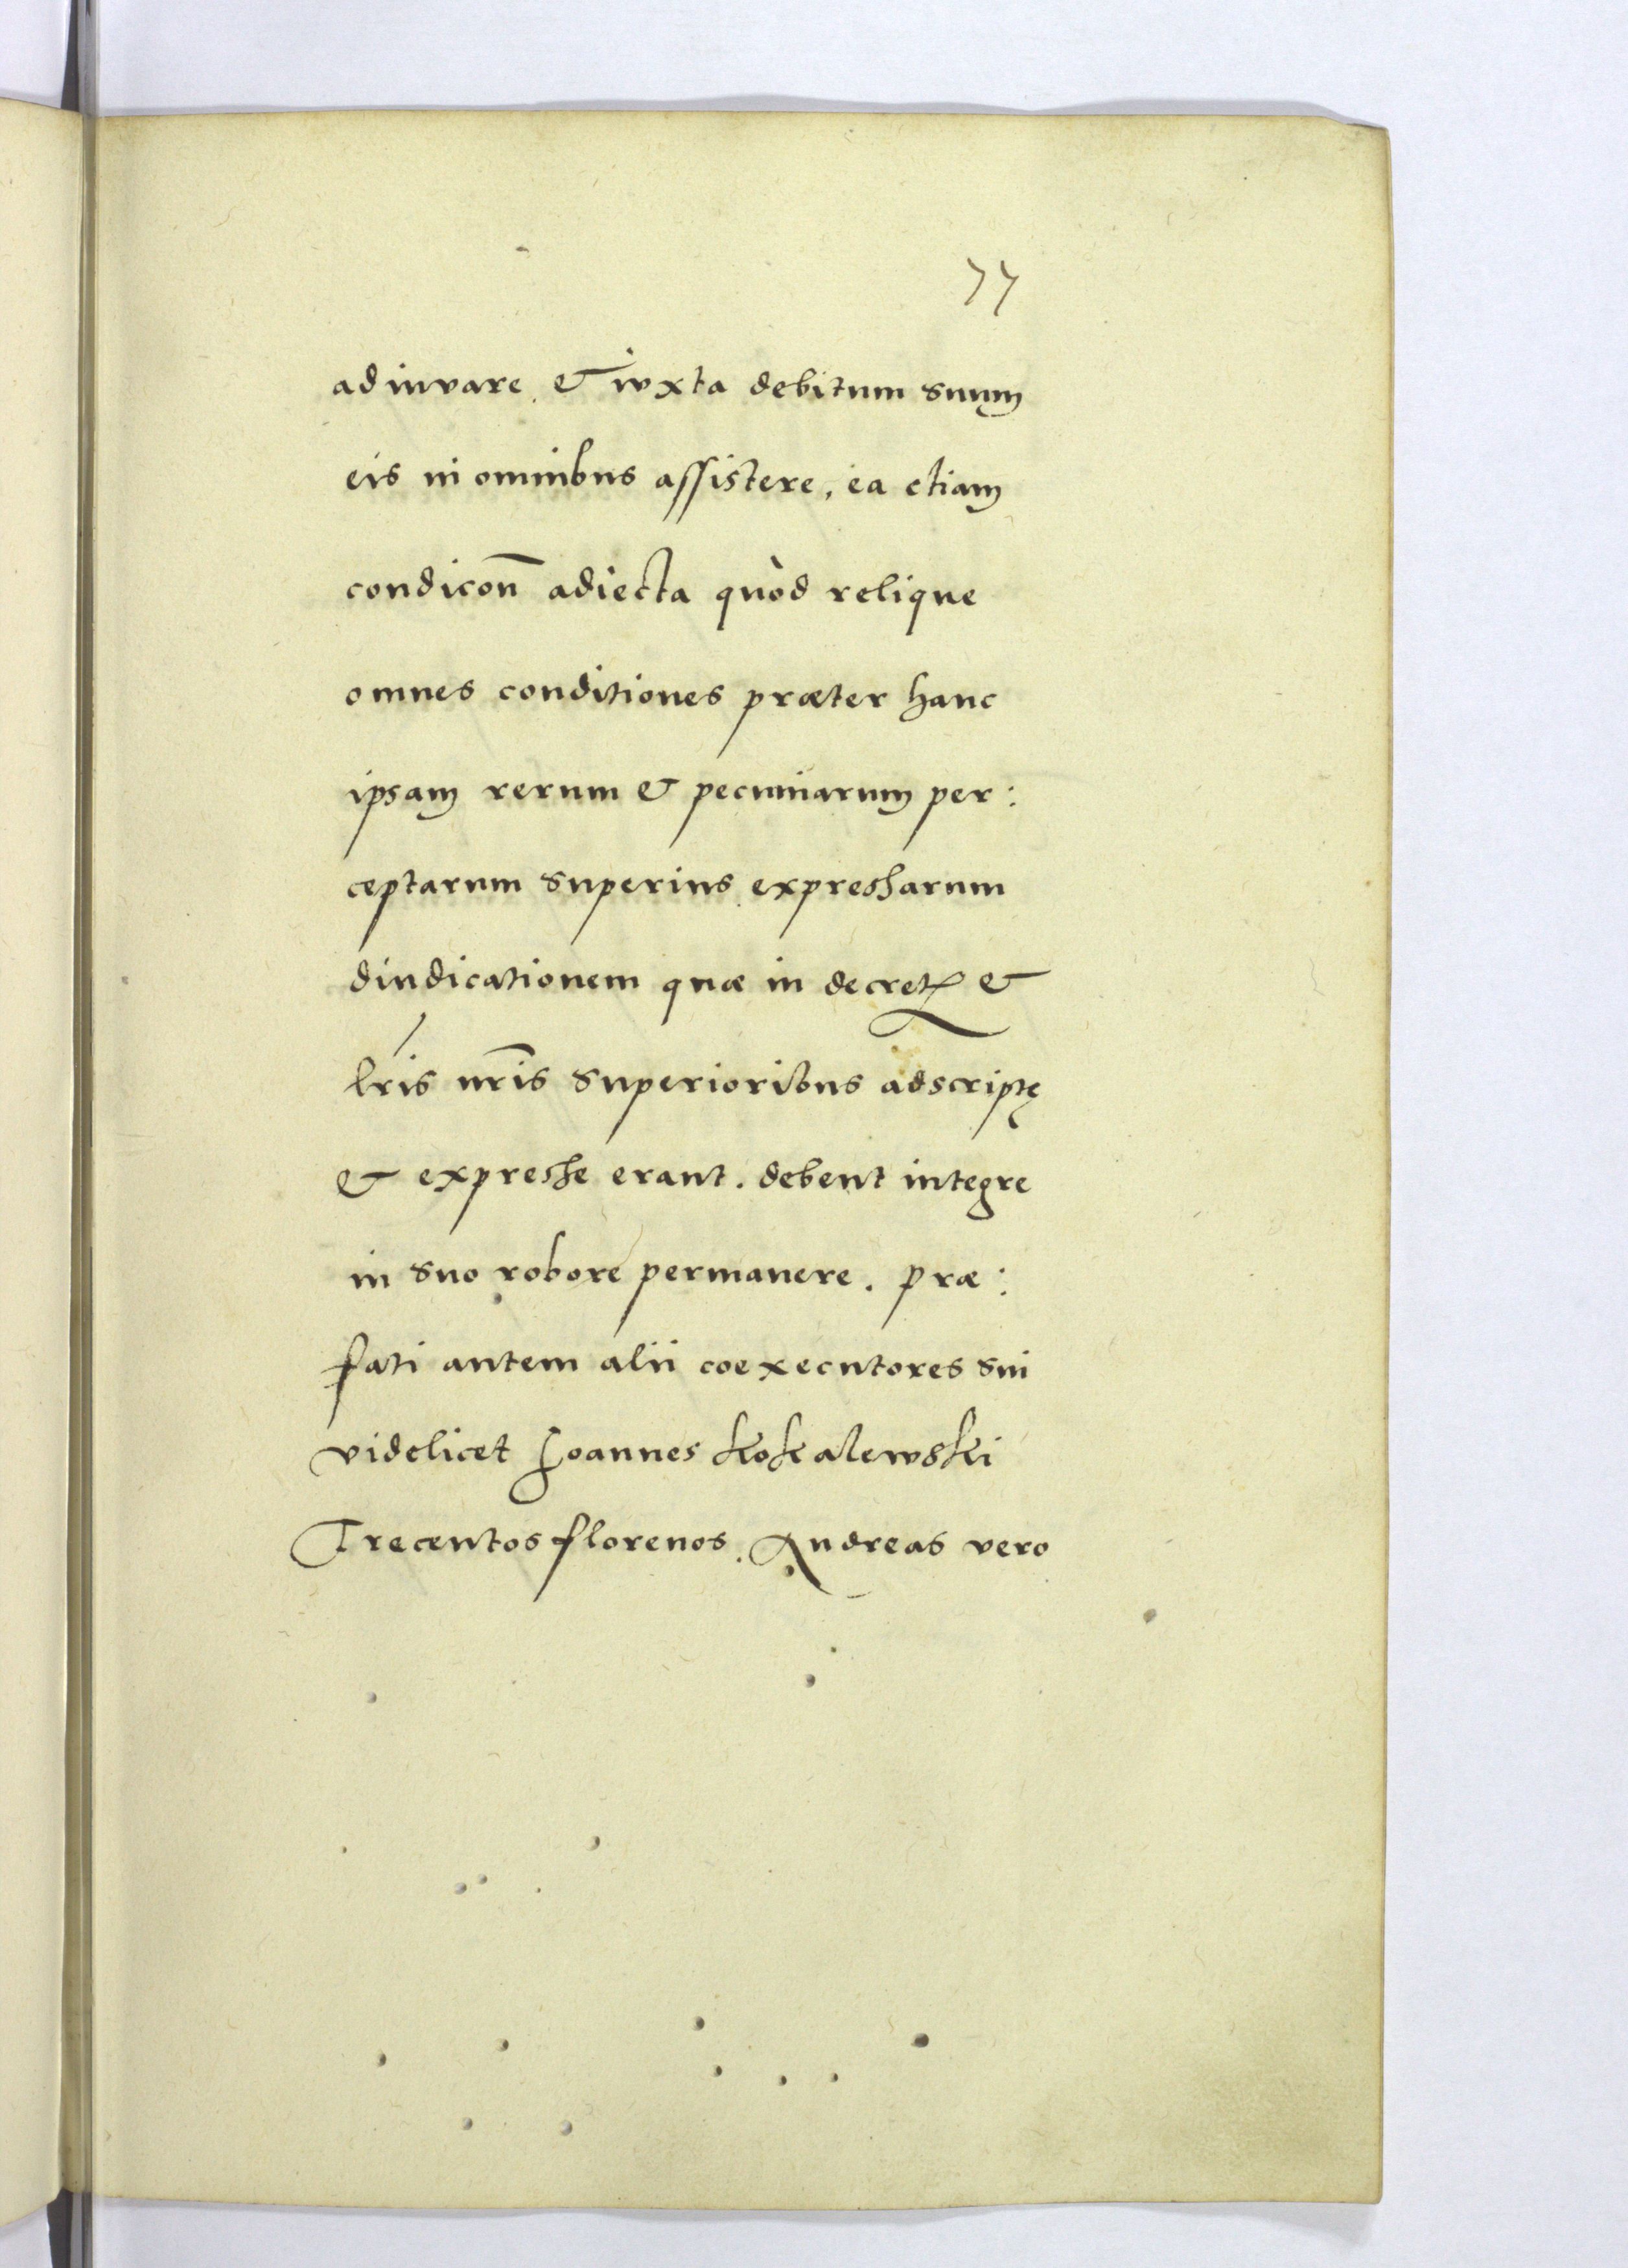 77
adiuvare, & iuxta debitum suum
eis in omnibus assistere, ea etiam
condicoñ adiecta quòd relique
omnes conditiones præter hanc
ipsam rerum & pecuniarum per:
ceptarum superius expressarum
diudicationem quæ in &
lr̃is nr̃is superioribus adscriptę
& expresse erant. debent integre
in suo robore permanere. Præ:
fati autem alii coexecutores sui
videlicet Joannes Kokalewski
Trecentos florenos. Andreas vero